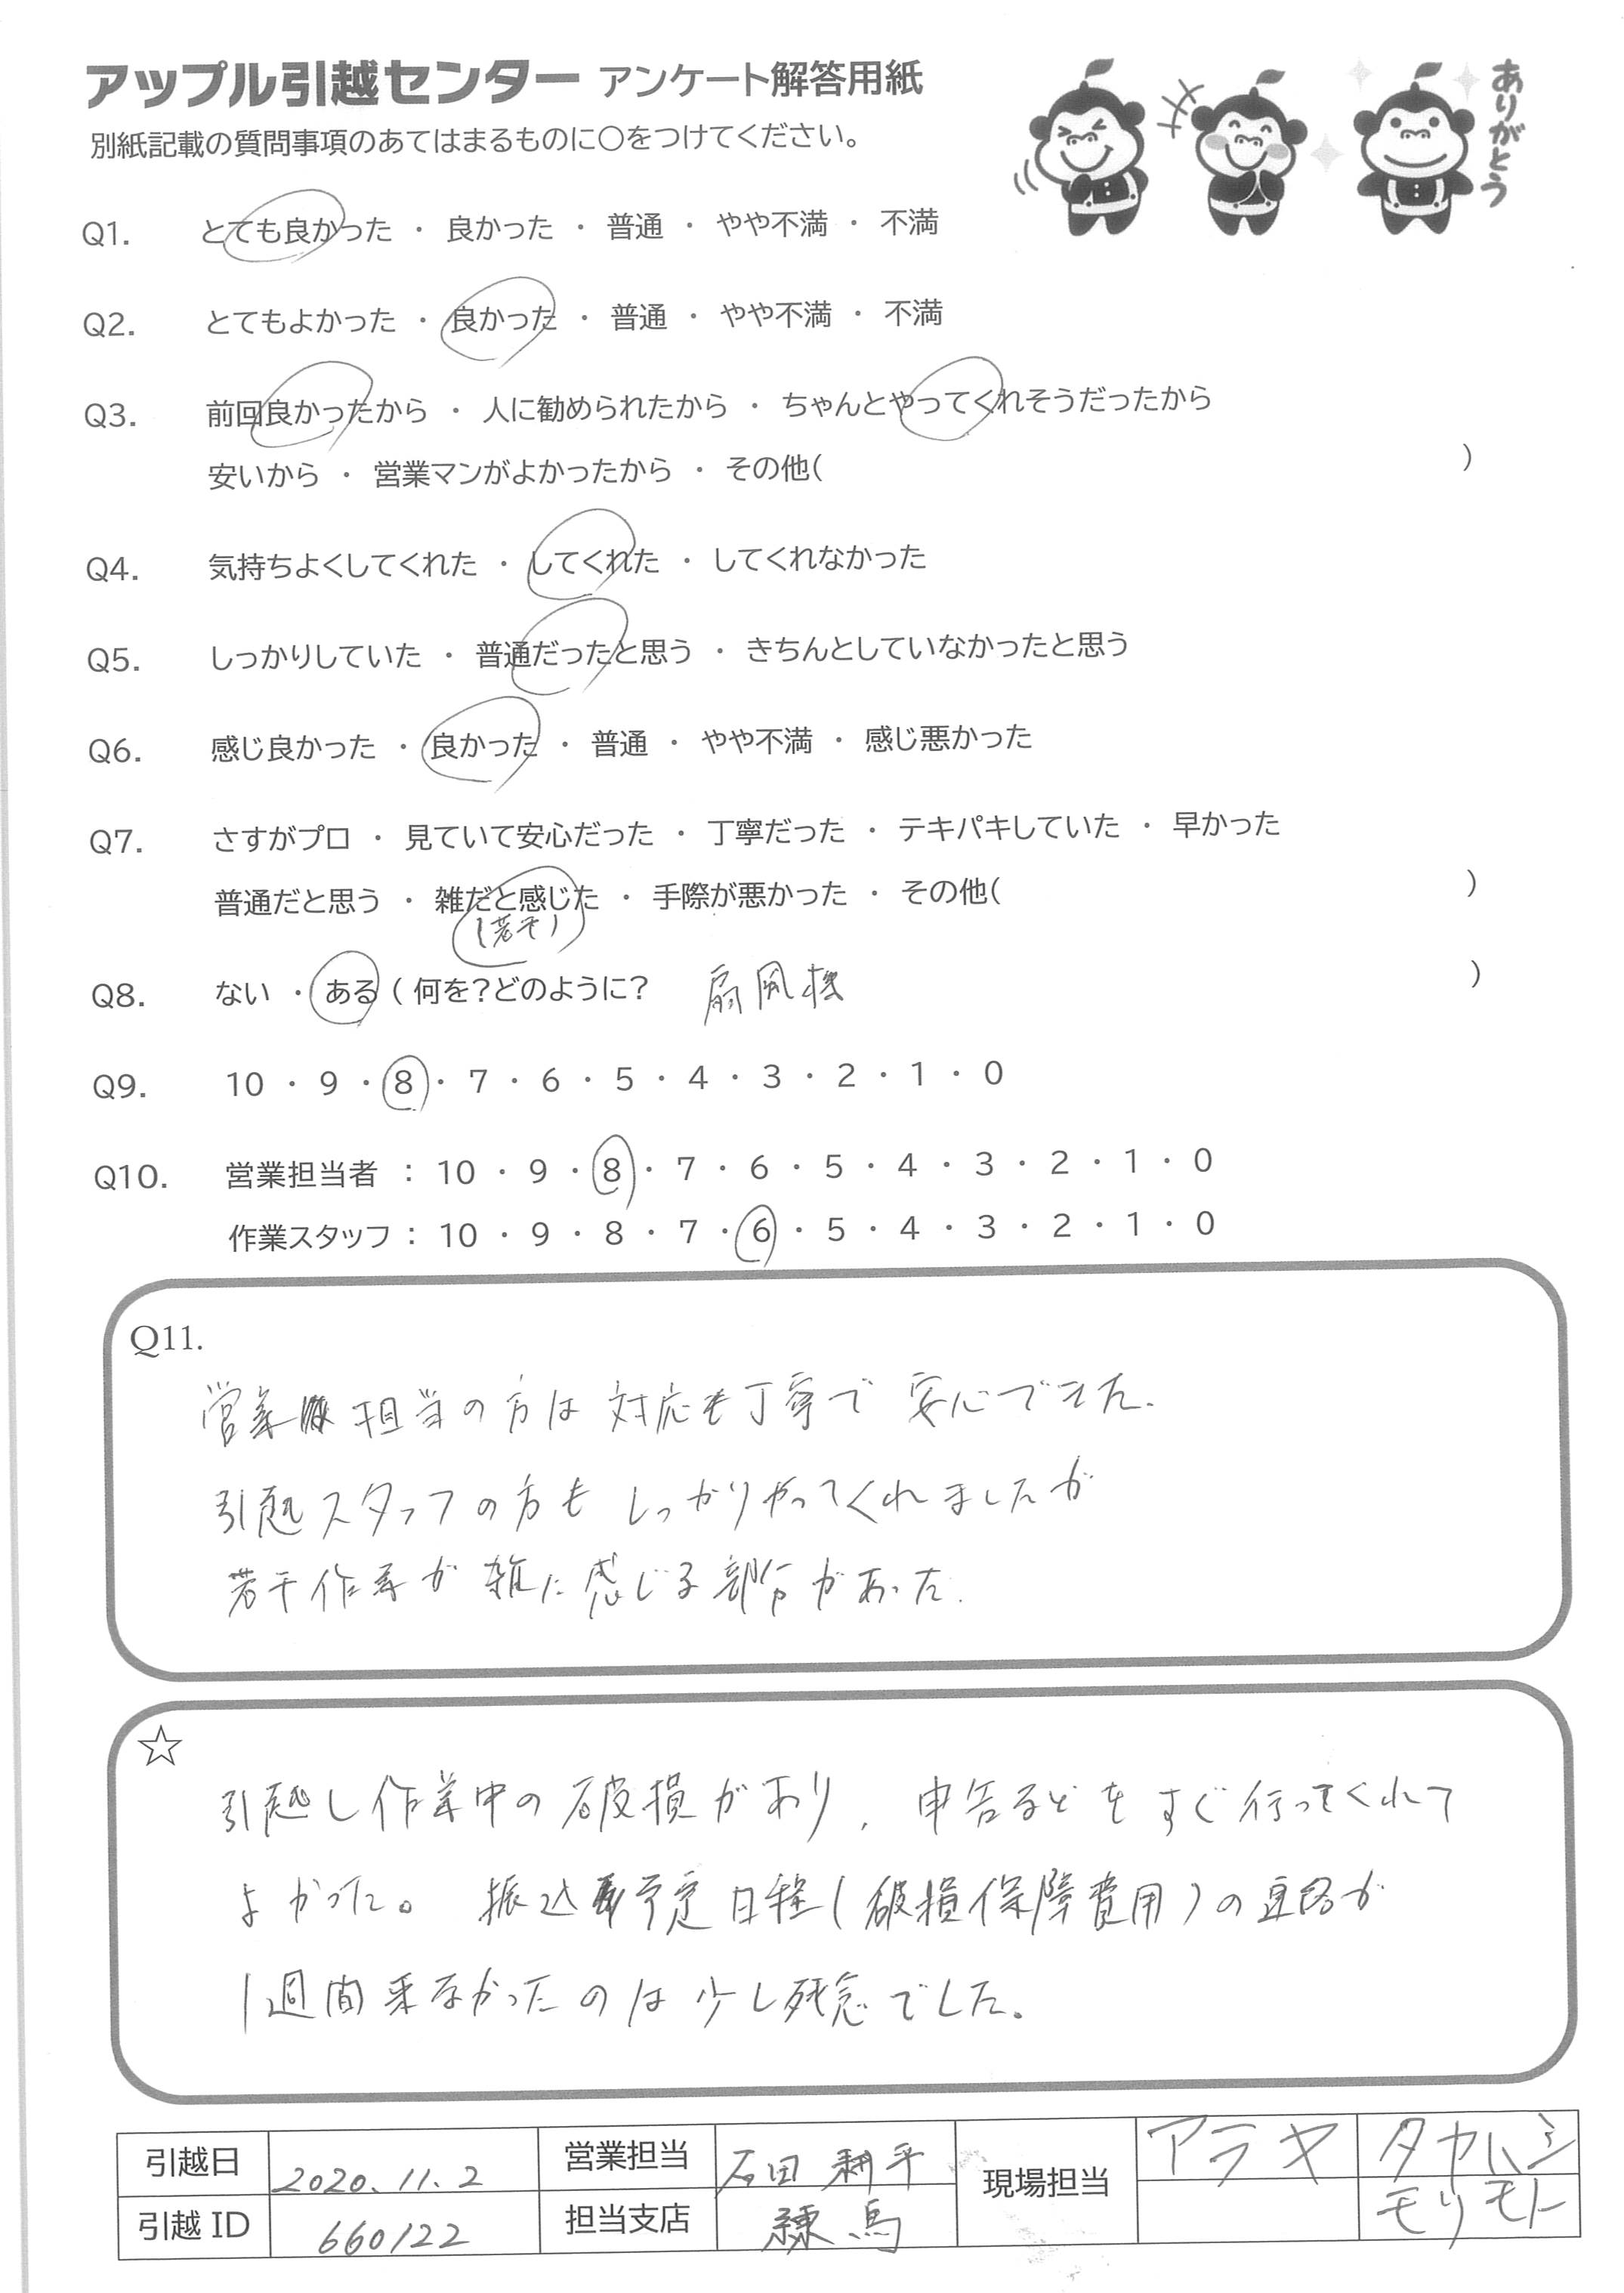 アップル引越センター アンケート解答用紙
ありがとう
別紙記載の質問事項のあてはまるものに○をつけてください。
Q1. とても良かった ・ 良かった ・ 普通 ・ やや不満 ・ 不満
Q2. とてもよかった ・ 良かった ・ 普通 ・ やや不満 ・ 不満
Q3. 前回良かったから ・ 人に勧められたから ・ ちゃんとやってくれそうだったから
安いから ・ 営業マンがよかったから ・ その他( )
Q4. 気持ちよくしてくれた ・ してくれた ・ してくれなかった
Q5. しっかりしていた ・ 普通だったと思う ・ きちんとしていなかったと思う
Q6. 感じ良かった ・ 良かった ・ 普通 ・ やや不満 ・ 感じ悪かった
Q7. さすがプロ ・ 見ていて安心だった ・ 丁寧だった ・ テキパキしていた ・ 早かった
普通だと思う ・ 雑だと感じた ・ 手際が悪かった ・ その他( )
(若干)
Q8. ない ・ ある ( 何を?どのように? 扇風機 )
Q9. 10 ・ 9 ・ 8 ・ 7 ・ 6 ・ 5 ・ 4 ・ 3 ・ 2 ・ 1 ・ 0
Q10. 営業担当者 : 10 ・ 9 ・ 8 ・ 7 ・ 6 ・ 5 ・ 4 ・ 3 ・ 2 ・ 1 ・ 0
作業スタッフ : 10 ・ 9 ・ 8 ・ 7 ・ 6 ・ 5 ・ 4 ・ 3 ・ 2 ・ 1 ・ 0
Q11.
営業担当の方は対応も丁寧で安心できた.
引越スタッフの方もしっかりやってくれましたが
若干作業が雑に感じる部分があった.
☆
引越し作業中の破損があり、申告などをすぐ行ってくれて
よかった。 振込予定日程(破損保障費用)の連絡が
1週間来なかったのは少し残念でした。
引越日 2020.11.2 営業担当 石田 耕平 現場担当 アラヤ タカハシ
引越ID 660122 担当支店 練馬 モリモト